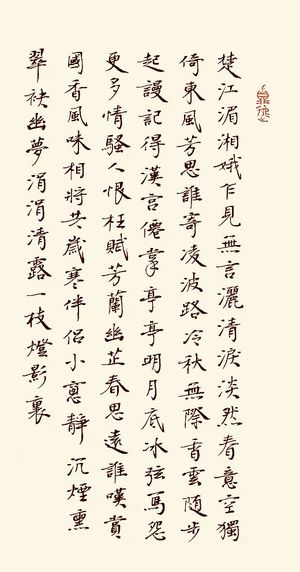 楚江湄湘娥乍見無言灑清淚淡然春意空獨
倚東風芳思誰寄凌波路冷秋無際香雲隨步
起謾記得漢宮僊掌亭亭明月底冰弦寫怨
更多情騷人恨枉賦芳蘭幽芷春思遠誰嘆賞
國香風味相將共歲寒伴侶小窻靜沉煙熏
翠袂幽夢涓涓清露一枝燈影裏